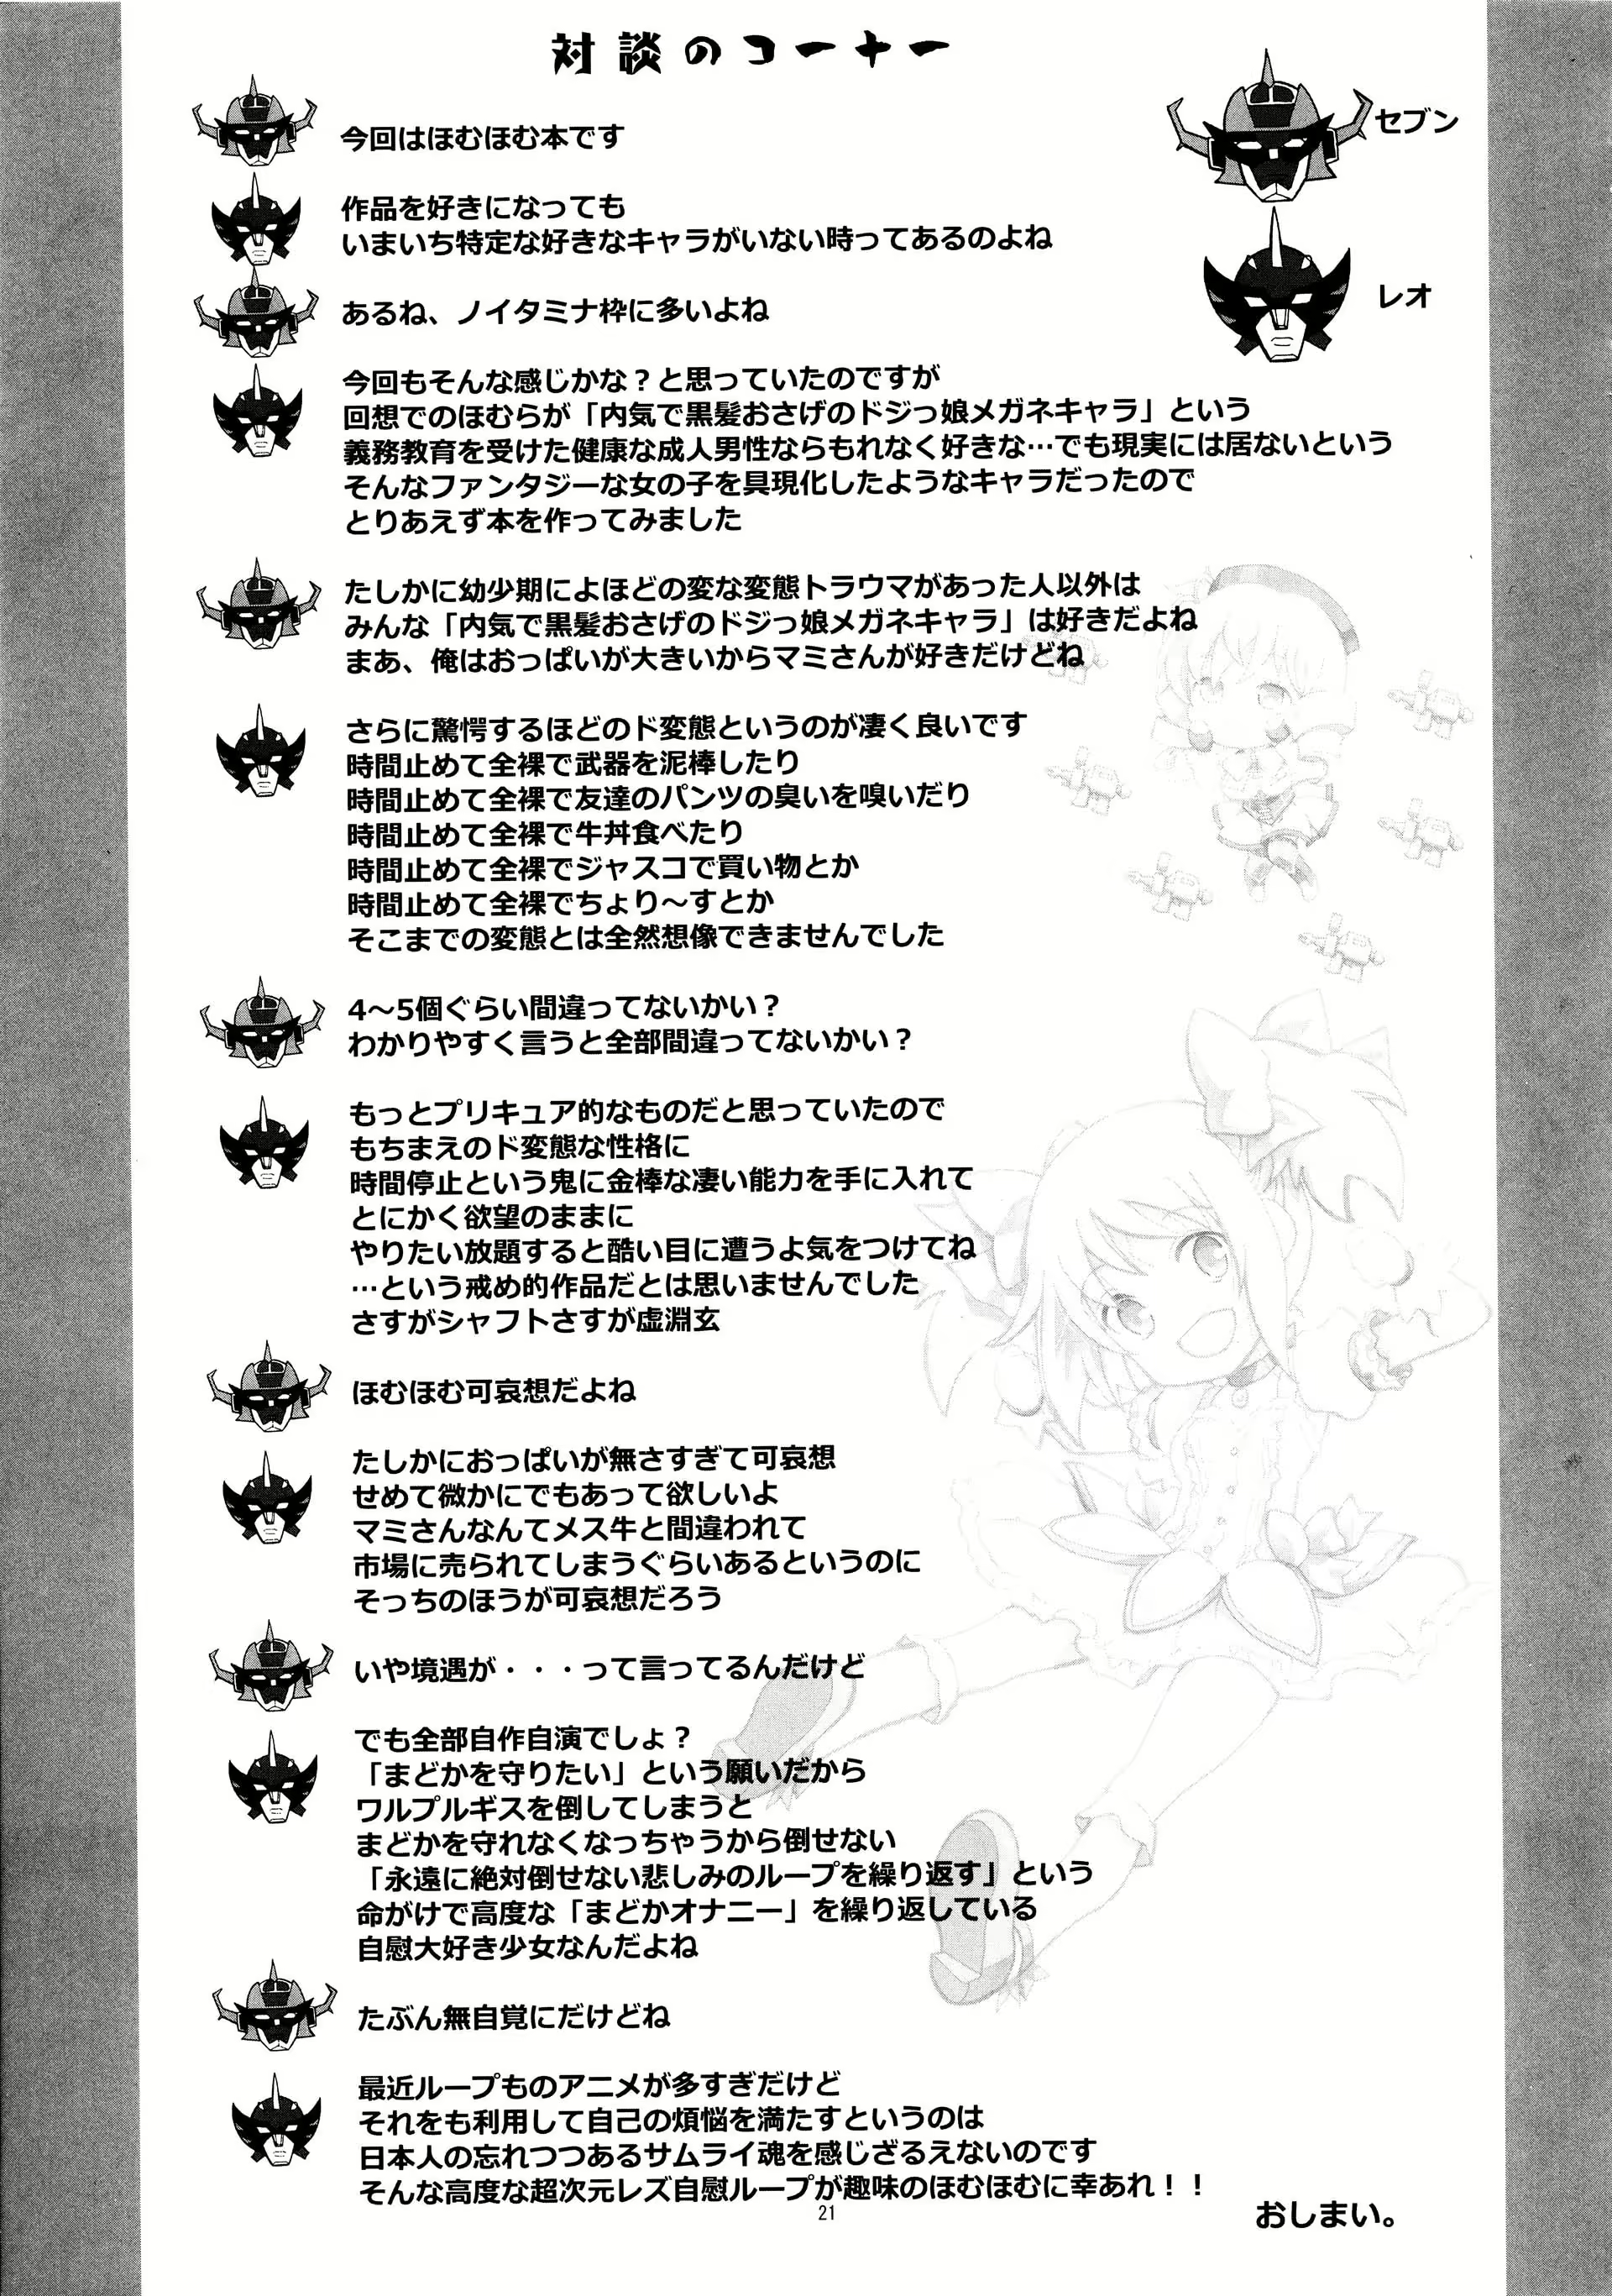 対談のコーナー
セブン
レオ
今回はほむほむ本です
作品を好きになっても
いまいち特定な好きなキャラがいない時ってあるのよね
あるね、ノイタミナ枠に多いよね
今回もそんな感じかな？と思っていたのですが
回想でのほむらが「内気で黒髪おさげのドジっ娘メガネキャラ」という
義務教育を受けた健康な成人男性ならもれなく好きな…でも現実には居ないという
そんなファンタジーな女の子を具現化したようなキャラだったので
とりあえず本を作ってみました
たしかに幼少期によほどの変な変態トラウマがあった人以外は
みんな「内気で黒髪おさげのドジっ娘メガネキャラ」は好きだよね
まあ、俺はおっぱいが大きいからマミさんが好きだけどね
さらに驚愕するほどのド変態というのが凄く良いです
時間止めて全裸で武器を泥棒したり
時間止めて全裸で友達のパンツの臭いを嗅いだり
時間止めて全裸で牛丼食べたり
時間止めて全裸でジャスコで買い物とか
時間止めて全裸でちょり～すとか
そこまでの変態とは全然想像できませんでした
4～5個ぐらい間違ってないかい？
わかりやすく言うと全部間違ってないかい？
もっとプリキュア的なものだと思っていたので
もちまえのド変態な性格に
時間停止という鬼に金棒な凄い能力を手に入れて
とにかく欲望のままに
やりたい放題すると酷い目に遭うよ気をつけてね
…という戒め的作品だとは思いませんでした
さすがシャフトさすが虚淵玄
ほむほむ可哀想だよね
たしかにおっぱいが無さすぎて可哀想
せめて微かにでもあって欲しいよ
マミさんなんてメス牛と間違われて
市場に売られてしまうぐらいあるというのに
そっちのほうが可哀想だろう
いや境遇が・・・って言ってるんだけど
でも全部自作自演でしょ？
「まどかを守りたい」という願いだから
ワルプルギスを倒してしまうと
まどかを守れなくなっちゃうから倒せない
「永遠に絶対倒せない悲しみのループを繰り返す」という
命がけで高度な「まどかオナニー」を繰り返している
自慰大好き少女なんだよね
たぶん無自覚にだけどね
最近ループものアニメが多すぎだけど
それをも利用して自己の煩悩を満たすというのは
日本人の忘れつつあるサムライ魂を感じざるえないのです
そんな高度な超次元レズ自慰ループが趣味のほむほむに幸あれ！！
おしまい。
21